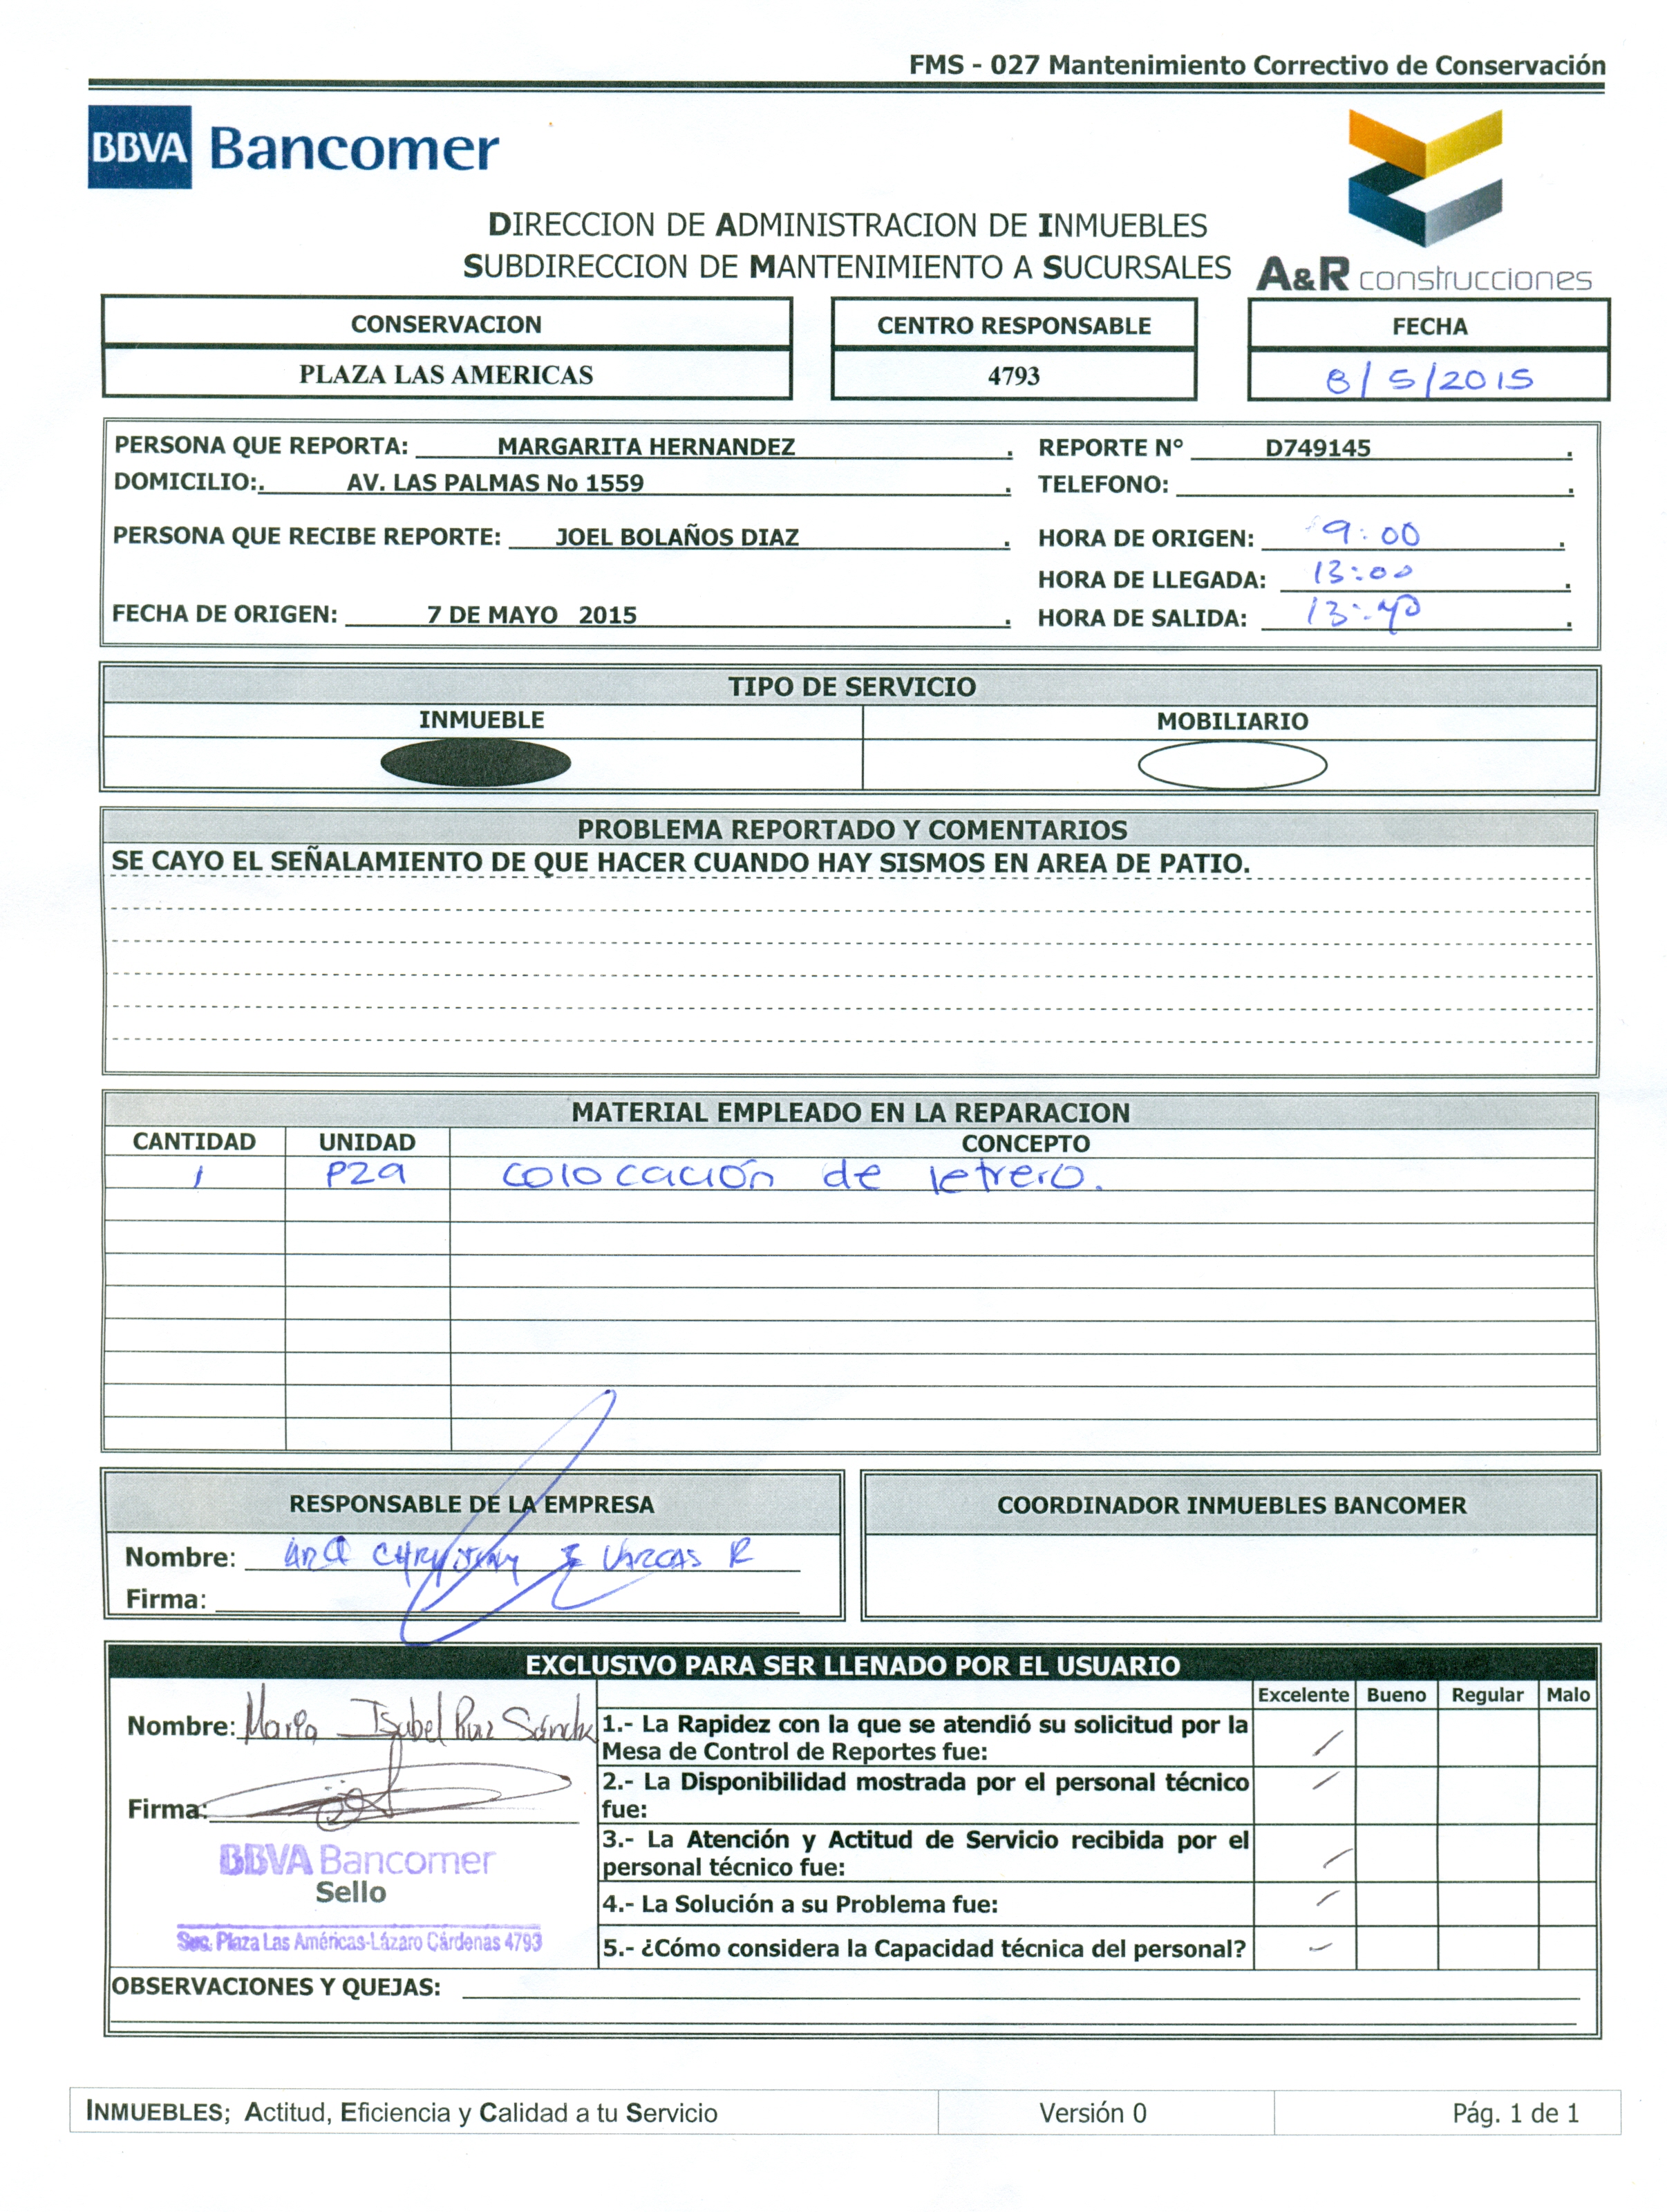 FMS - 027 Mantenimiento Correctivo de Conservación
BBVA Bancomer
DIRECCION DE ADMINISTRACION DE INMUEBLES
SUBDIRECCION DE MANTENIMIENTO A SUCURSALES
A&R construcciones
CONSERVACION CENTRO RESPONSABLE FECHA
PLAZA LAS AMERICAS 4793 8/5/2015
PERSONA QUE REPORTA: MARGARITA HERNANDEZ . REPORTE N° D749145 .
DOMICILIO:. AV. LAS PALMAS No 1559 . TELEFONO: .
PERSONA QUE RECIBE REPORTE: JOEL BOLAÑOS DIAZ . HORA DE ORIGEN: 9:00 .
HORA DE LLEGADA: 13:00 .
FECHA DE ORIGEN: 7 DE MAYO 2015 . HORA DE SALIDA: 13:40 .
TIPO DE SERVICIO
INMUEBLE MOBILIARIO
PROBLEMA REPORTADO Y COMENTARIOS
SE CAYO EL SEÑALAMIENTO DE QUE HACER CUANDO HAY SISMOS EN AREA DE PATIO.
MATERIAL EMPLEADO EN LA REPARACION
CANTIDAD UNIDAD CONCEPTO
1 Pza colocación de letrero.
RESPONSABLE DE LA EMPRESA COORDINADOR INMUEBLES BANCOMER
Nombre: VARGAS R
Firma:
EXCLUSIVO PARA SER LLENADO POR EL USUARIO
Excelente Bueno Regular Malo
Nombre: María Isabel Ruiz
1.- La Rapidez con la que se atendió su solicitud por la
Mesa de Control de Reportes fue:
2.- La Disponibilidad mostrada por el personal técnico
fue:
Firma:
3.- La Atención y Actitud de Servicio recibida por el
personal técnico fue:
BBVA Bancomer
Sello
4.- La Solución a su Problema fue:
Suc. Plaza Las Américas-Lázaro Cárdenas 4793
5.- ¿Cómo considera la Capacidad técnica del personal?
OBSERVACIONES Y QUEJAS:
INMUEBLES; Actitud, Eficiencia y Calidad a tu Servicio Versión 0 Pág. 1 de 1